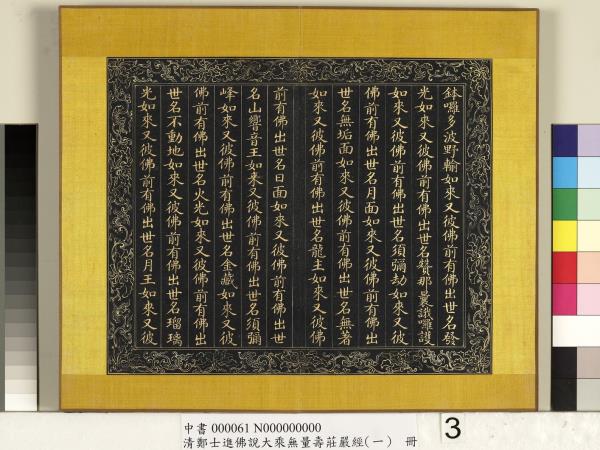 鉢囉多波野輸如來又彼佛前有佛出世名發
光如來又彼佛前有佛出世名贊那曩誐囉護
如來又彼佛前有佛出世名須彌劫如來又彼
佛前有佛出世名月面如來又彼佛前有佛出
世名無垢面如來又彼佛前有佛出世名無著
如來又彼佛前有佛出世名龍主如來又彼佛
前有佛出世名日面如來又彼佛前有佛出世
名山響音王如來又彼佛前有佛出世名須彌
峰如來又彼佛前有佛出世名金藏如來又彼
佛前有佛出世名火光如來又彼佛前有佛出
世名不動地如來又彼佛前有佛出世名瑠璃
光如來又彼佛前有佛出世名月王如來又彼
中書 000061 N000000000
清鄭士進佛說大乘無量壽莊嚴經(一) 冊
3